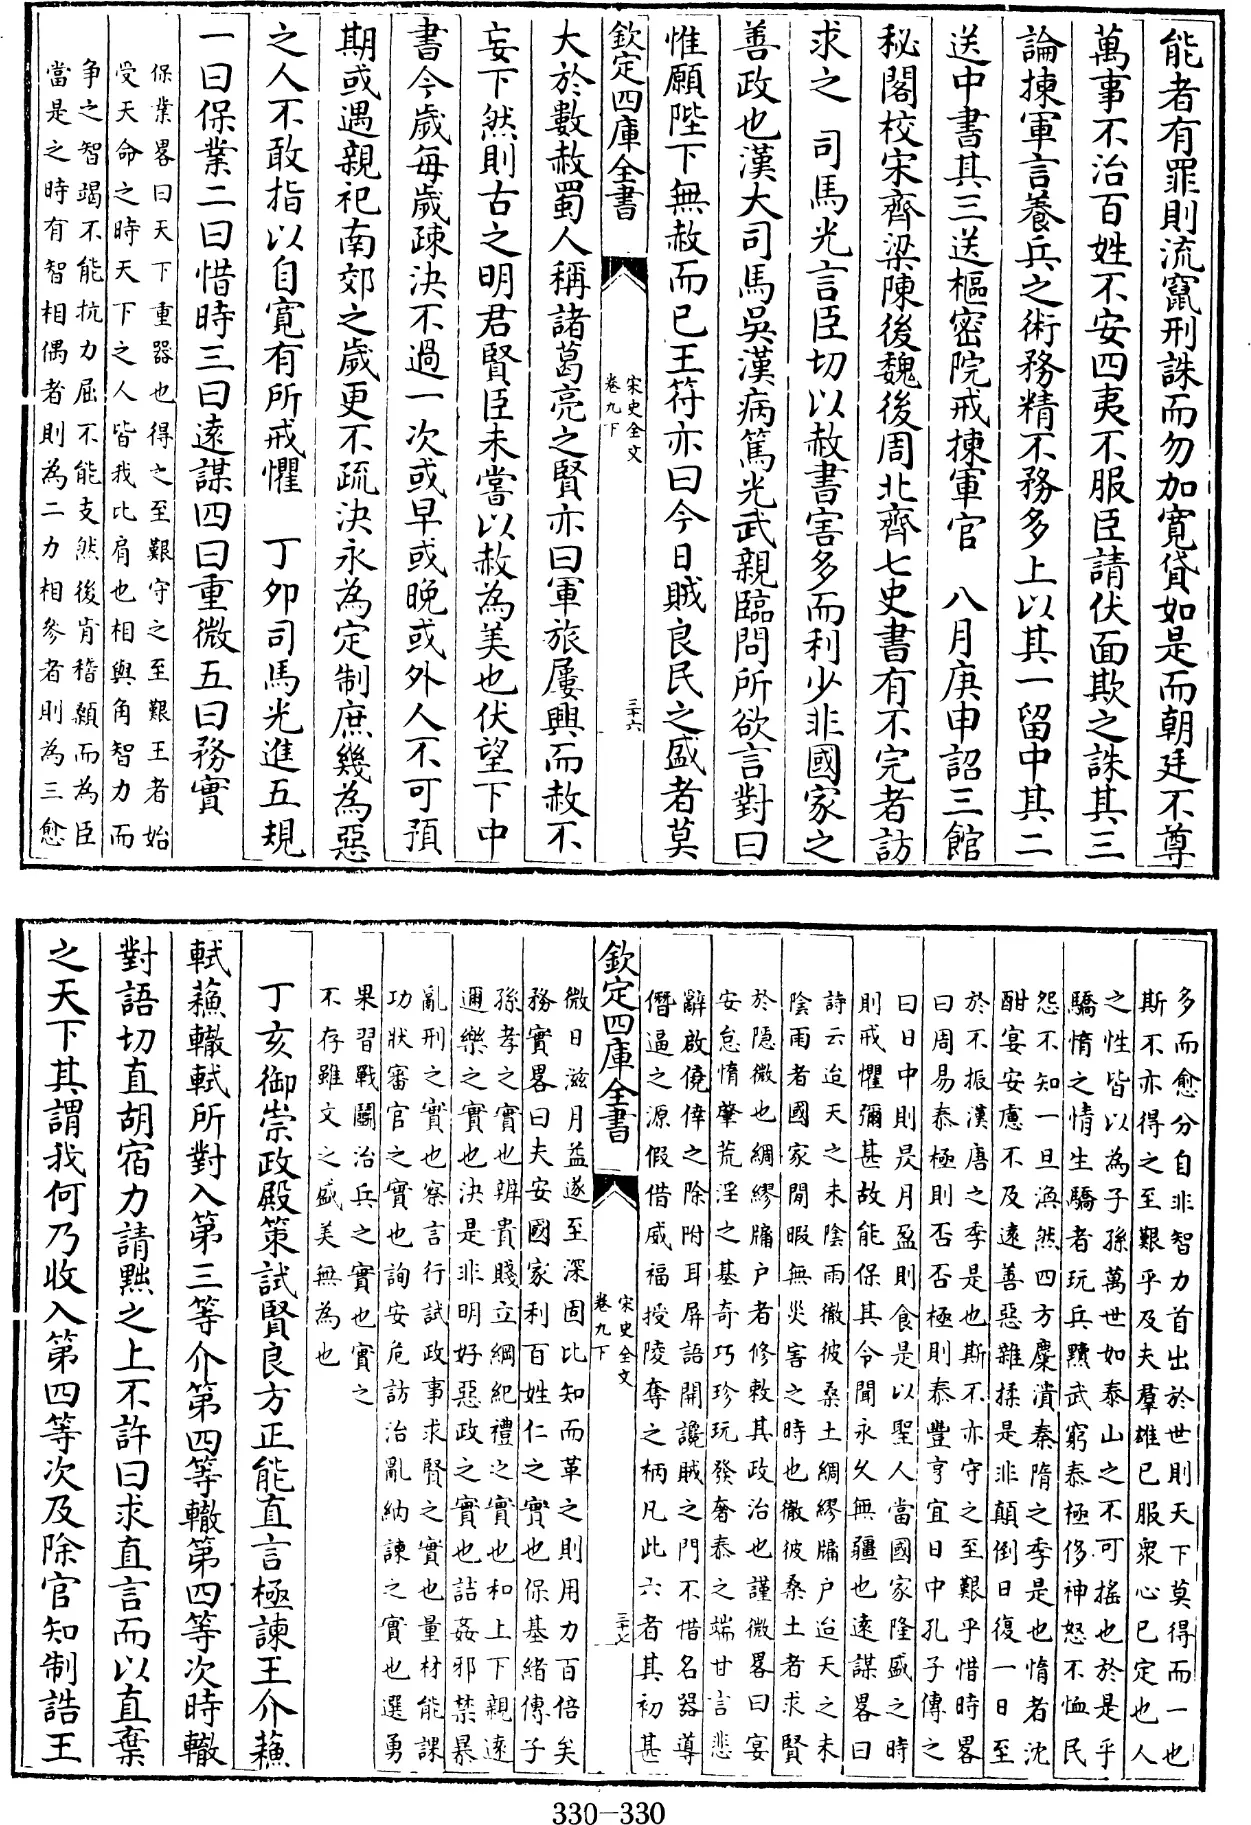 能者有罪則流竄刑誅而勿加寛貸如是而朝廷不尊
萬事不治百姓不安四夷不服臣請伏面欺之誅其三
論揀軍言養兵之術務精不務多上以其一留中其二
送中書其三送樞密院戒揀軍官　八月庚申詔三館
秘閣校宋齊梁陳後魏後周北齊七史書有不完者訪
求之　司馬光言臣切以赦書害多而利少非國家之
善政也漢大司馬吳漢病篤光武親臨問所欲言對曰
惟願陛下無赦而已王符亦曰今日賊良民之盛者莫
欽定四庫全書
宋史全文
卷九下
三十六
大於數赦蜀人稱諸葛亮之賢亦曰軍旅屢興而赦不
妄下然則古之明君賢臣未嘗以赦為美也伏望下中
書今歲每歲疎決不過一次或早或晚或外人不可預
期或遇親祀南郊之歲更不疏決永為定制庶幾為惡
之人不敢指以自寛有所戒懼　丁卯司馬光進五規
一曰保業二曰惜時三曰遠謀四曰重微五曰務實
保業畧曰天下重器也得之至艱守之至艱王者始
受天命之時天下之人皆我比肩也相與角智力而
争之智竭不能抗力屈不能支然後肯稽顙而為臣
當是之時有智相偶者則為二力相參者則為三愈
多而愈分自非智力首出於世則天下莫得而一也
斯不亦得之至艱乎及夫羣雄已服衆心已定也人
之性皆以為子孫萬世如泰山之不可搖也於是乎
驕惰之情生驕者玩兵黷武窮泰極侈神怒不恤民
怨不知一旦渙然四方麋潰秦隋之季是也惰者沈
酣宴安慮不及遠善惡雜揉是非顛倒日復一日至
於不振漢唐之季是也斯不亦守之至艱乎惜時畧
曰周易泰極則否否極則泰豐亨宜日中孔子傳之
曰日中則昃月盈則食是以聖人當國家隆盛之時
則戒懼彌甚故能保其令聞永久無疆也遠謀畧曰
詩云迨天之未陰雨徹彼桑土綢繆牖户迨天之未
陰雨者國家閒暇無災害之時也徹彼桑土者求賢
於隱微也綢繆牖户者修敕其政治也謹微畧曰宴
安怠惰肇荒淫之基奇巧珍玩發奢泰之端甘言悲
辭啟僥倖之除附耳屏語開讒賊之門不惜名器導
僭逼之源假借威福授陵奪之柄凡此六者其初甚
欽定四庫全書
宋史全文
卷九下
三十七
微日滋月益遂至深固比知而革之則用力百倍矣
務實畧曰夫安國家利百姓仁之實也保基緒傳子
孫孝之實也辨貴賤立綱紀禮之實也和上下親遠
邇樂之實也決是非明好惡政之實也詰姦邪禁暴
亂刑之實也察言行試政事求賢之實也量材能課
功狀審官之實也詢安危訪治亂納諫之實也選勇
果習戰鬬治兵之實也實之
不存雖文之盛美無為也
丁亥御崇政殿策試賢良方正能直言極諫王介蘓
軾蘓轍軾所對入第三等介第四等轍第四等次時轍
對語切直胡宿力請黜之上不許曰求直言而以直棄
之天下其謂我何乃收入第四等次及除官知制誥王
330-330